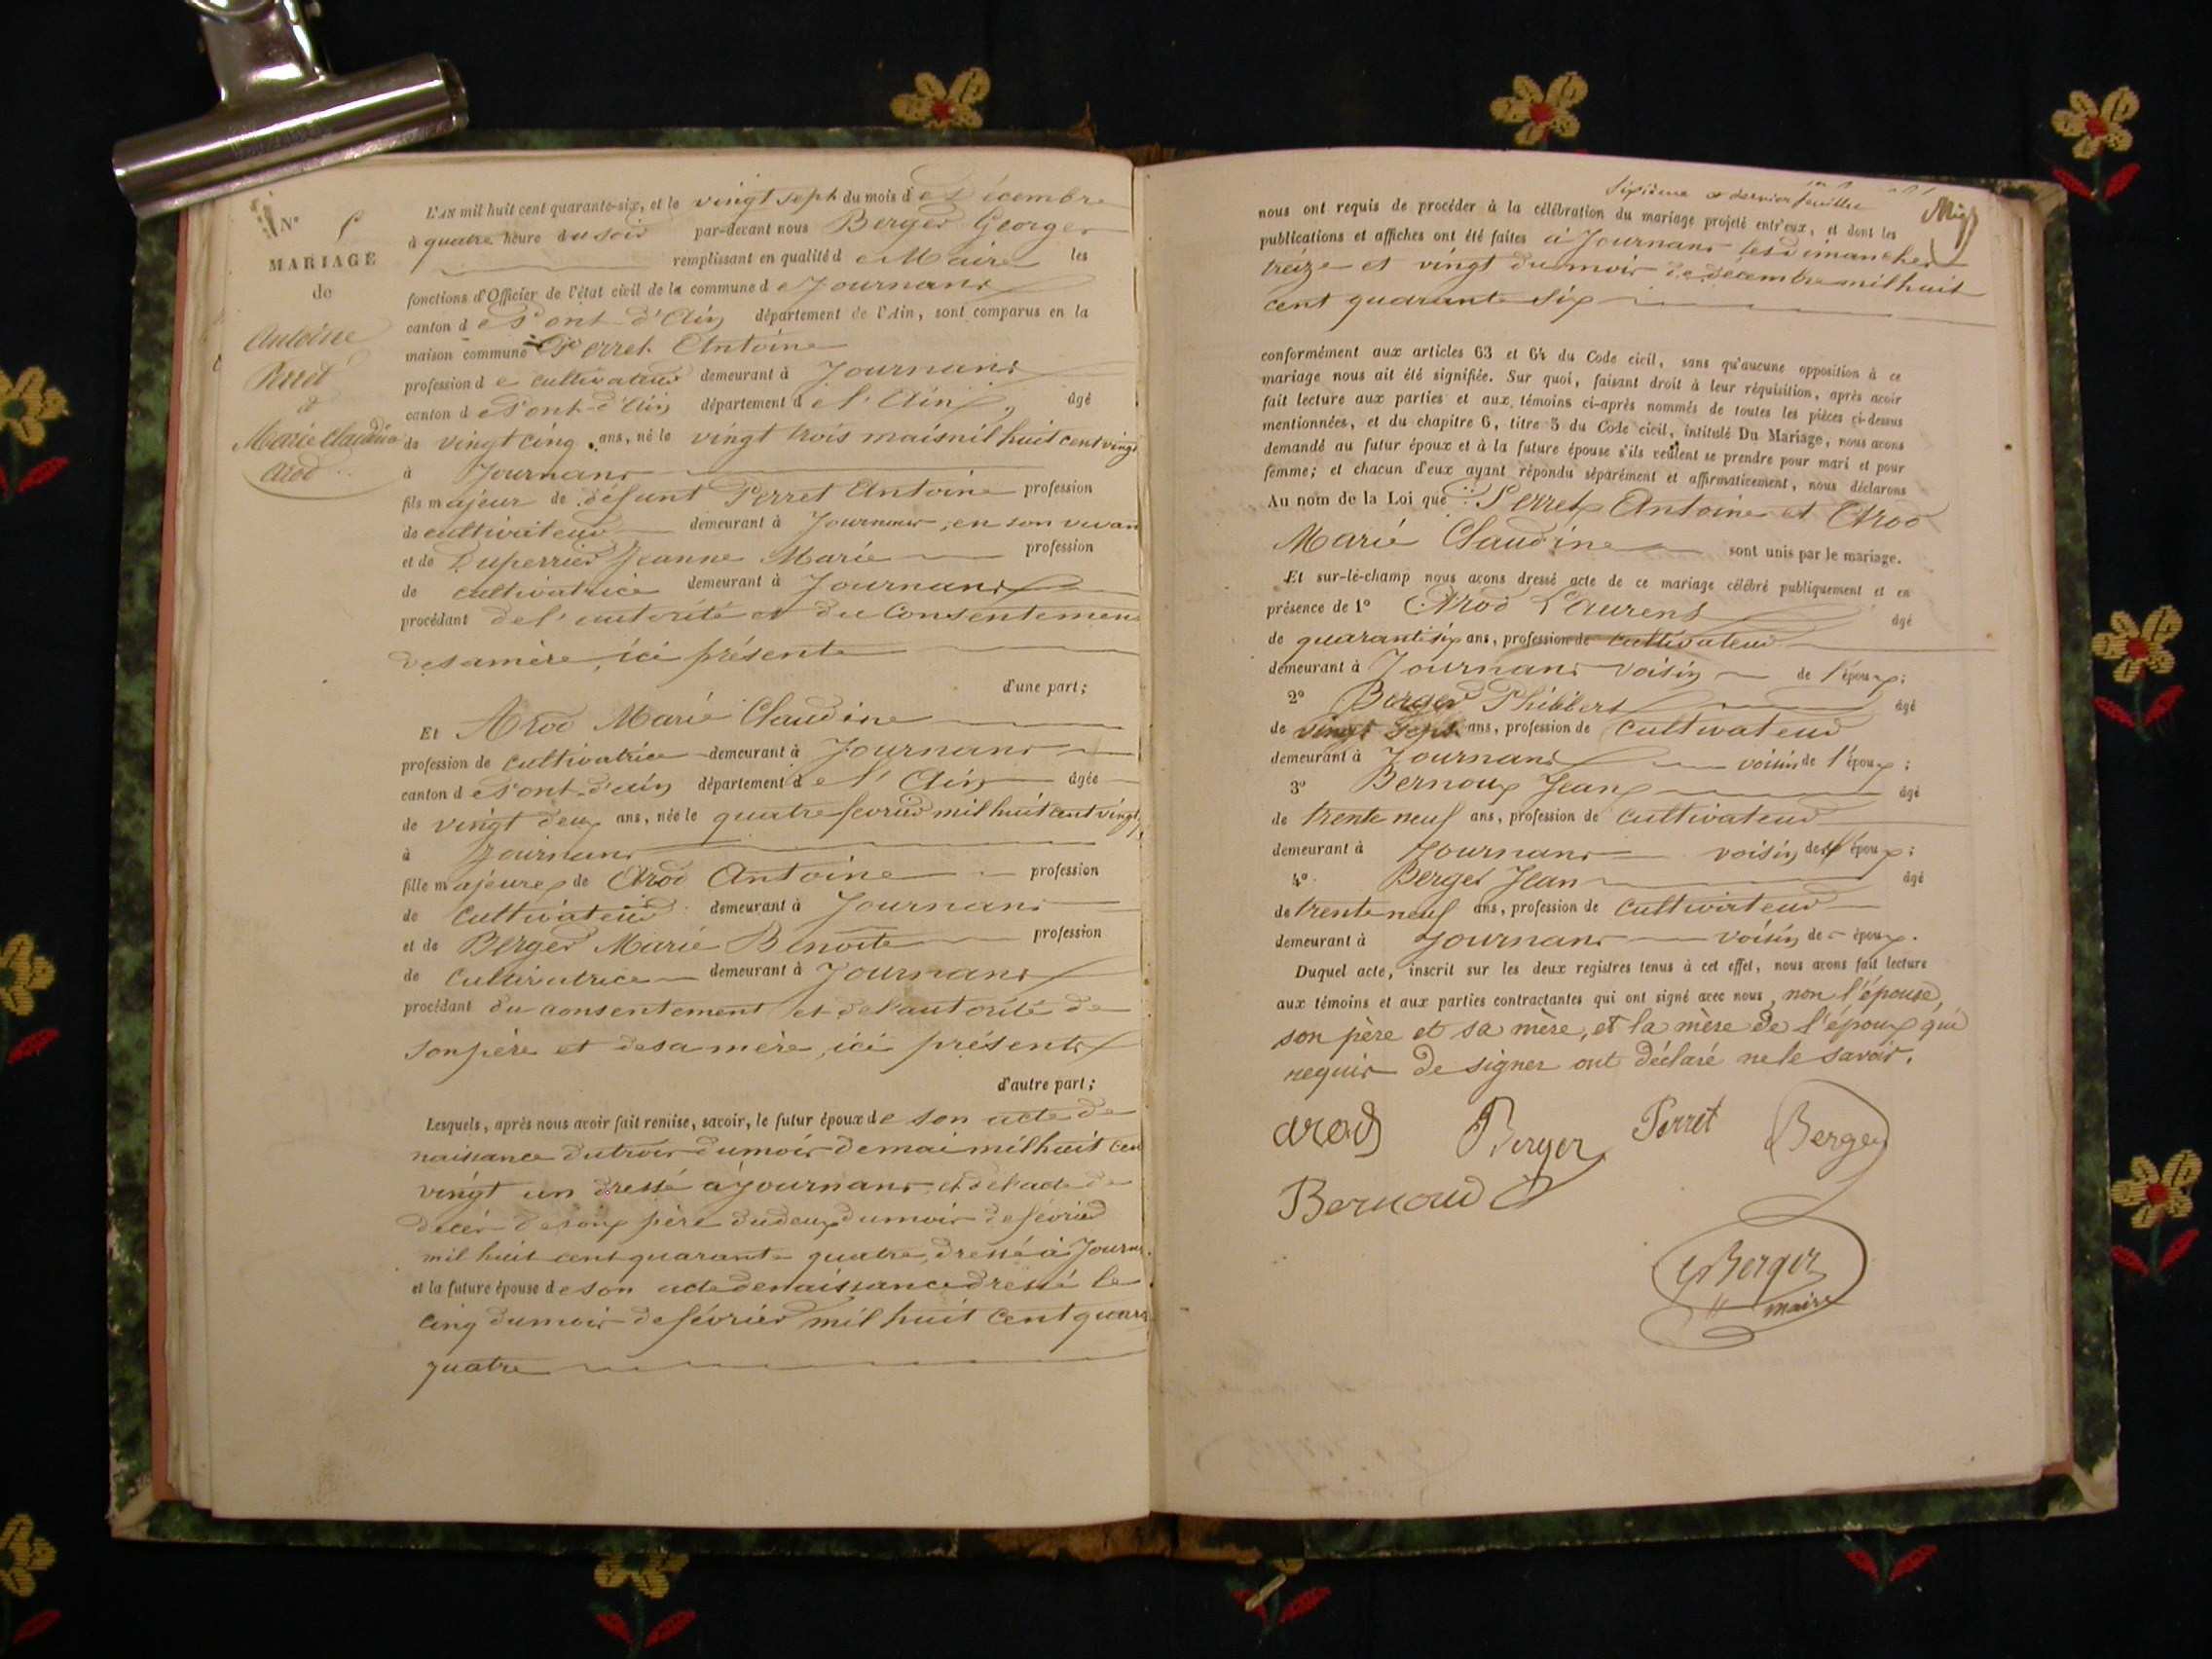 N° 5
MARIAGE
de
Antoine
Perret
et
Marie Claudine
Arod
L'AN mil huit cent quarante-six, et le vingt sept du mois de Décembre
à quatre heure du soir par-devant nous Berger George
remplissant en qualité de Maire les
fonctions d'Officier de l'état civil de la commune de Journans
canton de Pont-d'Ain département de l'Ain, sont comparus en la
maison commune Perret Antoine
profession de cultivateur demeurant à Journans
canton de Pont-d'Ain département de l'Ain, âgé
de vingt cinq ans, né le vingt trois mai mil huit cent vingt
à Journans
fils majeur de défunt Perret Antoine profession
de cultivateur demeurant à Journans, en son vivan
et de Duperrier Jeanne Marie profession
de cultivatrice demeurant à Journans
procédant de l'autorité et du Consentemen
de sa mère, ici présente
d'une part;
Et Arod Marie Claudine
profession de cultivatrice demeurant à Journans
canton de Pont-d'ain département de l'Ain âgée
de vingt deux ans, née le quatre fevrier mil huit cent vingt
à Journans
fille majeure de Arod Antoine profession
de Cultivateur demeurant à Journans
et de Berger Marie Benoite profession
de Cultivatrice demeurant à Journans
procédant du consentement et de l'autorité de
son père et de sa mère, ici présents
d'autre part;
Lesquels, après nous avoir fait remise, savoir, le futur époux de son acte de
naissance du trois du mois de mai mil huit cen
vingt un dressé à Journans, et de l'acte de
décès de son père du deux du mois de février
mil huit cent quarante quatre, dressé à Journ
et la future épouse de son acte de naissance dressé le
cinq du mois de février mil huit cent quara
quatre
Sixième et dernier feuillet
nous ont requis de procéder à la célébration du mariage projeté entr'eux, et dont les
publications et affiches ont été faites à Journans les dimanches
treize et vingt du mois de décembre mil huit
cent quarante six
conformément aux articles 63 et 64 du Code civil, sans qu'aucune opposition à ce
mariage nous ait été signifiée. Sur quoi, faisant droit à leur réquisition, après avoir
fait lecture aux parties et aux témoins ci-après nommés de toutes les pièces ci-dessus
mentionnées, et du chapitre 6, titre 5 du Code civil, intitulé Du Mariage, nous avons
demandé au futur époux et à la future épouse s'ils veulent se prendre pour mari et pour
femme; et chacun d'eux ayant répondu séparément et affirmativement, nous déclarons
Au nom de la Loi que Perret Antoine et Arod
Marie Claudine sont unis par le mariage.
Et sur-lé-champ nous avons dressé acte de ce mariage célébré publiquement et en
présence de 1° Arod Laurent âgé
de quarante six ans, profession de cultivateur
demeurant à Journans voisin de l'époux;
2° Berger Philibert âgé
de vingt sept ans, profession de cultivateur
demeurant à Journans voisin de l'époux;
3° Bernoux Jean âgé
de trente neuf ans, profession de cultivateur
demeurant à Journans voisin de l'époux;
4° Berger Jean âgé
de trente neuf ans, profession de Cultivateur
demeurant à Journans voisin de époux.
Duquel acte, inscrit sur les deux registres tenus à cet effet, nous avons fait lecture
aux témoins et aux parties contractantes qui ont signé avec nous, non l'épouse,
son père et sa mère, et la mère de l'époux qui
requis de signer ont déclaré ne le savoir.
arod Berger Perret Berger
Bernoud
G Berger
maire